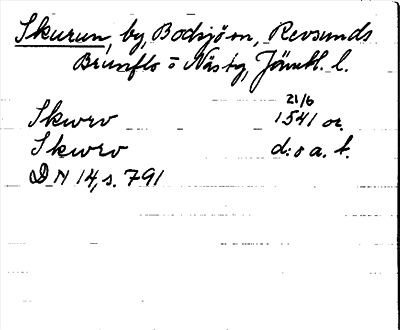 Skurun, by, Bodsjö sn, Revsunds
Brunflo o Näs tg, Jämtl. l.
21/6
Skwrv 1541 or.
Skwrv d:o a. k.
DN 14, s. 791